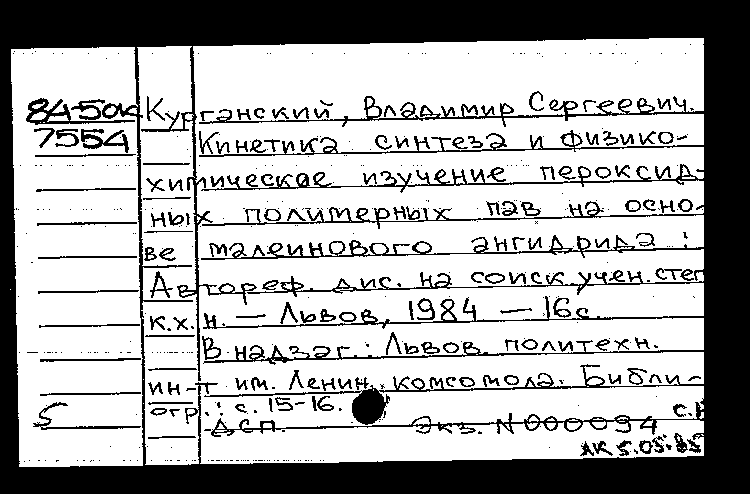 84-50к Курганский, Владимир Сергеевич.
7554 Кинетика синтеза и физико-
химическое изучение пероксид-
ных полимерных пав на осно-
ве малеинового ангидрида :
Автореф. дис. на соиск. учен. степ
к.х.н. — Львов, 1984 — 16с.
В надзаг.: Львов. политехн.
ин-т им. Ленин. комсомола. Библи-
огр.: с. 15-16.
5 ДСП. Экз. N000094
5.05.85